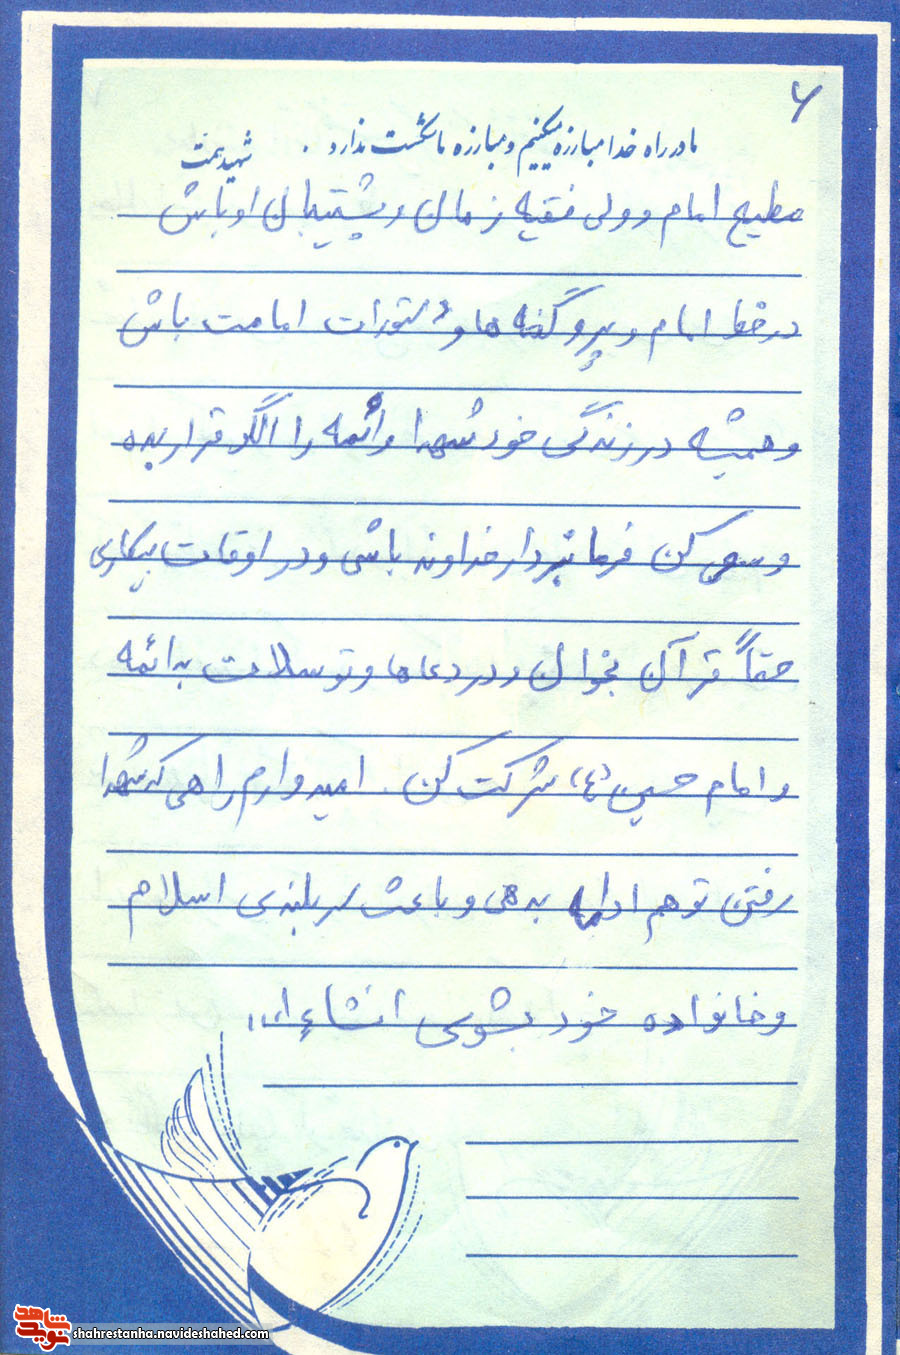 ۶
ما در راه خدا مبارزه میکنیم و مبارزه ما شکست ندارد.
شهید همت
مطیع امام و ولی فقیه زمان و پشتیبان او باش
در خط امام و پیرو گفته ها و دستورات امامت باش
و همیشه در زندگی خود شهدا و ائمه را الگو قرار بده
و سعی کن فرمانبردار خداوند باشی و در اوقات بیکاری
حتماً قرآن بخوان و در دعاها و توسلات به ائمه
و امام حسین (ع) شرکت کن. امیدوارم راهی که شهدا
رفتن تو هم ادامه بدهی و باعث سربلندی اسلام
و خانواده خود بشوی انشاء ا...
شاهد
نوید
shahrestanha.navideshahed.com